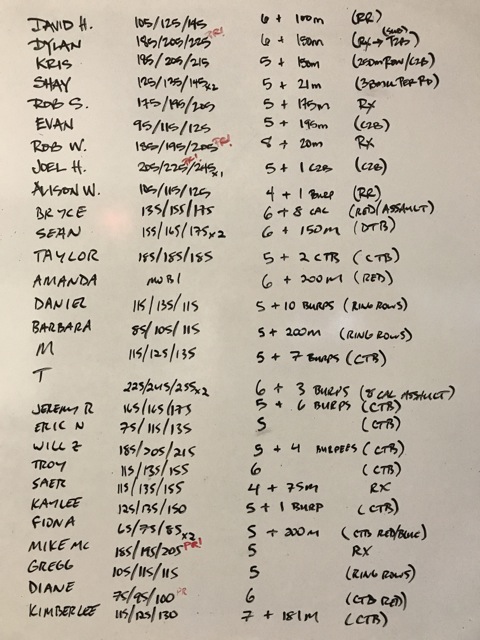 DAVID H. 105/125/145 6 + 100m (RR)
DYLAN 185/205/225 PR! 6 + 150m (RX → T2B) (SUB)
KRIS 185/205/215 5 + 150m (250m ROW/C2B)
SHAY 125/135/145 x2 5 + 21m (3 BMU PER RD)
ROB S. 175/195/205 5 + 175m RX
EVAN 95/115/125 5 + 195m (C2B)
ROB W. 185/195/205 PR! 8 + 20m RX
JOEL H. 205/225/245 x1 PR! 5 + 1 C2B (C2B)
ALISON W. 105/115/125 4 + 1 BURP (RR)
BRYCE 135/155/175 6 + 8 CAL (RED/ASSAULT)
SEAN 155/165/175 x2 6 + 150M (DTB)
TAYLOR 185/185/185 5 + 2 CTB (CTB)
AMANDA 6 + 200M (RED)
DANIEL 115/135/115 5 + 10 BURPS (RING ROWS)
BARBARA 85/105/115 5 + 200m (RING ROWS)
M 115/125/135 5 + 7 BURPS (CTB)
T 225/245/255 x2 6 + 3 BURPS (8 CAL ASSAULT)
JEREMY R 165/165/173 5 + 6 BURPS (CTB)
ERIC N 75/115/135 5 (CTB)
WILL Z 185/205/215 5 + 4 BURPEES (CTB)
TROY 115/135/155 6 (CTB)
SAER 115/135/155 4 + 75m RX
KAYLEE 125/135/150 5 + 1 BURP (CTB)
FIONA 65/75/85 x2 5 + 200m (CTB RED/BLUE)
MIKE MC 185/195/205 PR! 5 RX
GREGG 105/115/115 5 (RING ROWS)
DIANE 75/95/100 PR 6 (CTB RED)
KIMBERLEE 115/125/130 7 + 181M (CTB)